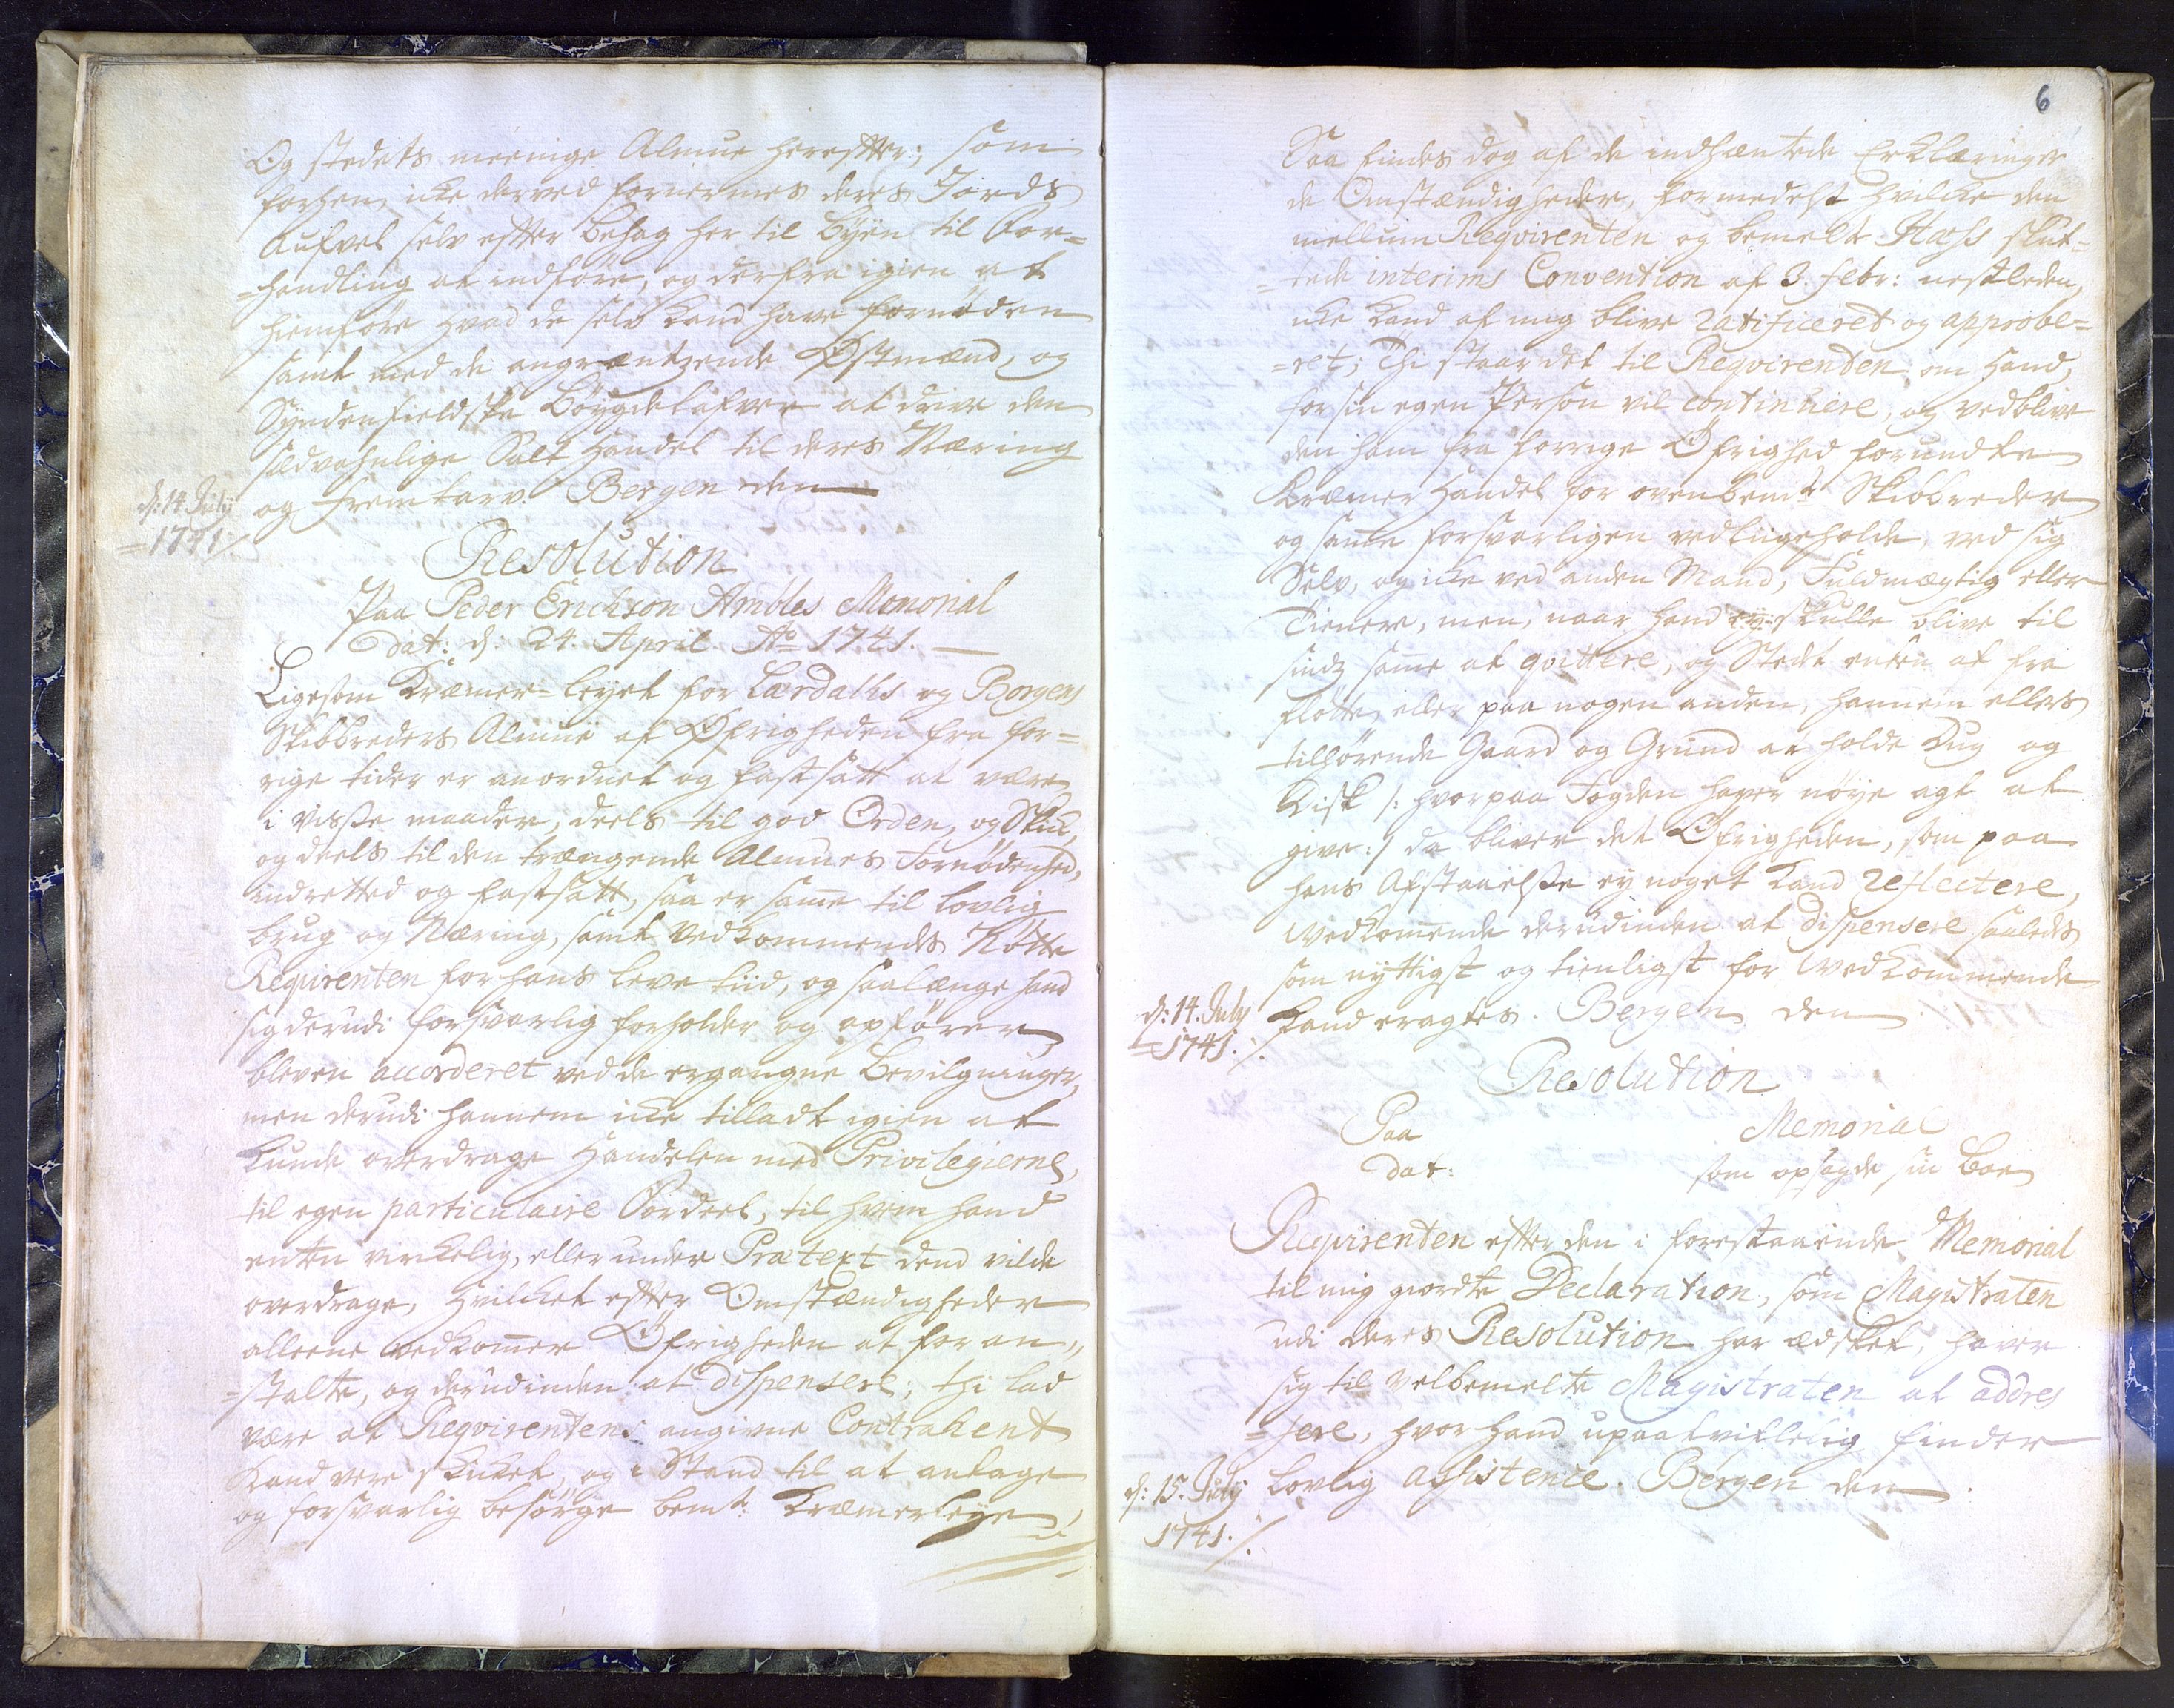 Og stedets meenige Almue herefter, som
forhen icke derved fornermes deres Jords
Aufvel selv efter behag her til byen til For-
=handling at indføre, og derfra igien at
hiemføre hvad de selv kand have fornøden
samt med de angræntzende Østmænd, og
Syndenfieldske Bøygdelafver at drive den
sædvahnlige Salt Handel til deres Næring
og fremtarv. Bergen den
d: 14 July
=1741 ./.
Resolution
Paa Peder Erichson Ambles Memorial
dat: d: 24. April Ao 1741.
Ligesom Kræmer-leyet for Lærdahls og Borgens
Skibbreders Almue af Øfrigheden fra for-
rige tider er anordnet og fastsatt at være
i visse maader, deels til god Orden, og Skik,
og deels til den trængende Almues Fornødenhed,
indretted og fastsatt, saa er samme til lovlig
brug og Næring, samt vedkommendes Nøtte
Reqvirenten for hans leve tiid, og saalænge hand
sig derudi forsvarlig forholder og opfører,
bleven accorderet ved de ergangne bevilgninger,
men derudi hannem icke tilladt igien at
kunde overdrage Handelen med Privilegierne,
til egen particulaire Fordeel, til hvem hand
enten virkelig, eller under Prætext dend vilde
overdrage, hvilcket efter Omstændigheder
alleene vedkommer Øfrigheden at foran-
=stalte, og derudinden at dispensere; thi lad
være at Reqvirentens angivne Contrahent
kand være skicket, og i Stand til at antage
og forsvarlig besørge bemte: Kræmerleye,
6
Saa findes dog af de indhæntede Erklæringer
de Omstændigheder, formedelst hvilcke den
mellum Reqvirenten og bemelte Hass slut-
=tede interims Convention af 3. Febr: nestleden,
icke kand af mig blive ratificeret og approbe-
=ret; Thi staar det til Reqvirenten, om hand,
for sin egen Person vil continuere, og vedblive
den ham fra forrige Øfrighed forundte
Kræmer Handel for ovenbemte Skibbreder
og samme forsvarligen vedligeholde, ved sig
Selv, og icke ved anden Mand, Fuldmægtig eller
Tienere, men, naar hand ey skulle blive til
sinds samme at qvittere, og Stedet enten at fra
fløtte, eller paa nogen anden, hannem ellers
tilhørende Gaard og Grund at holde Dug og
Disk /: hvorpaa Fogden haver nøye agt at
give :/ da bliver det Øfrigheden, som paa
hans Afstaaelse ey noget kand reflectere,
vedkommende derudinden at dispensere saaledes
som nyttigst og tienligst for vedkommende
kand eragtes. Bergen den
d: 14. July
=1741. ./.
Resolution
Paa Memorial
dat: som opsagde sin boe
Reqvirenten efter den i forestaaende Memorial
til mig giordte Declaration, som Magistraten
udi deres Resolution har ædsket, haver
sig til velbemelte Magistraten at addres
=sere, hvor hand upaatvifllelig finder
lovlig assistence. Bergen den
d: 15. July
1741. ./.